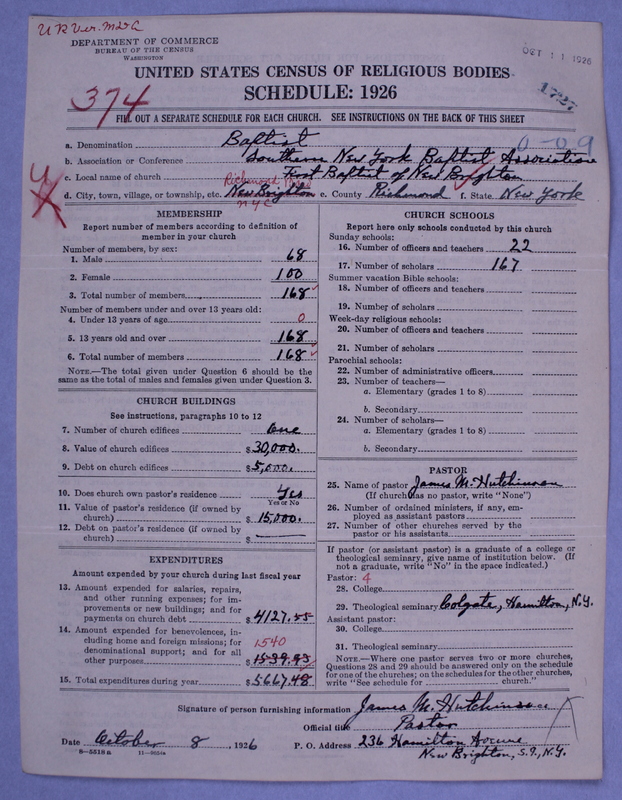 DEPARTMENT OF COMMERCE
BUREAU OF THE CENSUS
WASHINGTON
OCT 11 1926
1727
UNITED STATES CENSUS OF RELIGIOUS BODIES
SCHEDULE: 1926
374
FILL OUT A SEPARATE SCHEDULE FOR EACH CHURCH. SEE INSTRUCTIONS ON THE BACK OF THIS SHEET
0-09
a. Denomination Baptist
b. Association or Conference Southern New York Baptist Association
c. Local name of church First Baptist of New Brighton
Richmond Boro
d. City, town, village, or township, etc. New Brighton e. County Richmond f. State New York
NYC
MEMBERSHIP
Report number of members according to definition of
member in your church
Number of members, by sex:
1. Male 68
2. Female 100
3. Total number of members 168
Number of members under and over 13 years old:
4. Under 13 years of age 0
5. 13 years old and over 168
6. Total number of members 168
NOTE.—The total given under Question 6 should be the
same as the total of males and females given under Question 3.
CHURCH BUILDINGS
See instructions, paragraphs 10 to 12
7. Number of church edifices One
8. Value of church edifices $30,000.
9. Debt on church edifices $5,000.
10. Does church own pastor's residence Yes
Yes or No
11. Value of pastor's residence (if owned by
church) $15,000.
12. Debt on pastor's residence (if owned by
church) $
EXPENDITURES
Amount expended by your church during last fiscal year
13. Amount expended for salaries, repairs,
and other running expenses; for im-
provements or new buildings; and for
payments on church debt $4127.55
14. Amount expended for benevolences, in-
cluding home and foreign missions; for
denominational support; and for all 1540
other purposes $1539.93
15. Total expenditures during year $5667.48
CHURCH SCHOOLS
Report here only schools conducted by this church
Sunday schools:
16. Number of officers and teachers 22
17. Number of scholars 167
Summer vacation Bible schools:
18. Number of officers and teachers
19. Number of scholars
Week-day religious schools:
20. Number of officers and teachers
21. Number of scholars
Parochial schools:
22. Number of administrative officers
23. Number of teachers—
a. Elementary (grades 1 to 8)
b. Secondary
24. Number of scholars—
a. Elementary (grades 1 to 8)
b. Secondary
PASTOR
25. Name of pastor James M. Hutchinson
(If church has no pastor, write "None")
26. Number of ordained ministers, if any, em-
ployed as assistant pastors
27. Number of other churches served by the
pastor or his assistants
If pastor (or assistant pastor) is a graduate of a college or
theological seminary, give name of institution below. (If
not a graduate, write "No" in the space indicated.)
Pastor: 4
28. College
29. Theological seminary Colgate, Hamilton, N.Y.
Assistant pastor:
30. College
31. Theological seminary
NOTE.—Where one pastor serves two or more churches,
Questions 28 and 29 should be answered only on the schedule
for one of the churches; on the schedules for the other churches,
write "See schedule for church."
Signature of person furnishing information James M. Hutchinson
Official title Pastor
Date October 8, 1926 P. O. Address 236 Hamilton Avenue
8-5518a New Brighton, S.I., N.Y.